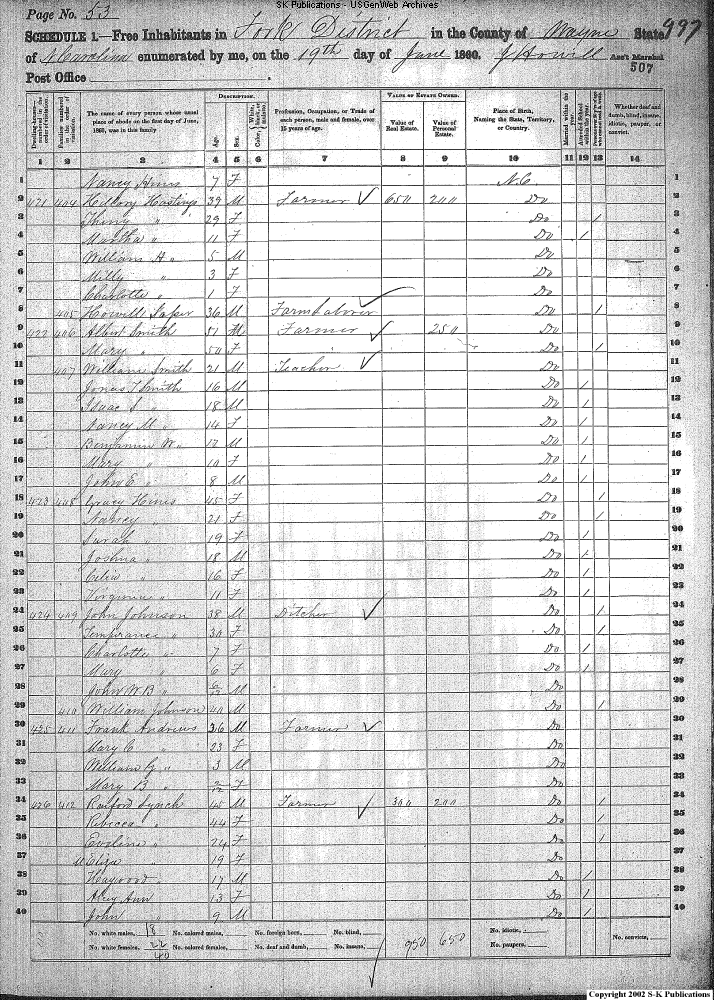 SK Publications - USGenWeb Archives
Page No. 53
SCHEDULE 1.—Free Inhabitants in Fork District in the County of Wayne State 997
of N Carolina enumerated by me, on the 19th day of June 1860. J Howell Ass't Marshal
507
Post Office
Dwelling-houses numbered in the order of visitation.
Families numbered in the order of visitation.
The name of every person whose usual place of abode on the first day of June, 1860, was in this family
DESCRIPTION.
Age.
Sex.
Color, White, black, or mulatto.
Profession, Occupation, or Trade of each person, male and female, over 15 years of age.
VALUE OF ESTATE OWNED.
Value of Real Estate.
Value of Personal Estate.
Place of Birth, Naming the State, Territory, or Country.
Married within the year.
Whether deaf and dumb, blind, insane, idiotic, pauper, or convict.
1 2 3 4 5 6 7 8 9 10 11 12 13 14
1 Nancy 7 F N.C. 1
2 421 404 Hillory Hastings 39 M Farmer 650 200 Do 2
3 " 29 F Do / 3
4 Martha " 11 F Do / 4
5 William H " 5 M Do 5
6 Milly " 3 F Do 6
7 Charlotte " 1 F Do 7
8 405 Howell 36 M Farm Laborer Do / 8
9 422 406 Albert Smith 51 M Farmer 250 Do 9
10 Mary " 50 F Do / 10
11 407 William Smith 21 M Teacher Do 11
12 Jonas T Smith 16 M Do / 12
13 Isaac S " 18 M Do / 13
14 Nancy M " 14 F Do / 14
15 Benjamin W " 12 M Do / 15
16 Mary " 10 F Do / 16
17 John E " 8 M Do / 17
18 423 408 Gracy Hines 45 F Do / 18
19 Nancy " 21 F Do / 19
20 Sarah " 19 F Do / 20
21 Joshua " 18 M Do / 21
22 " 16 F Do / 22
23 Virginius " 11 F Do / 23
24 424 409 John Johnson 38 M Ditcher Do / 24
25 Temperance " 30 F Do / 25
26 Charlotte " 7 F Do / 26
27 Mary " 6 F Do / 27
28 John W B " M Do 28
29 410 William Johnson 40 M Do / 29
30 425 411 Frank Andrews 36 M Farmer Do 30
31 Mary C " 23 F Do 31
32 William G " 3 M Do 32
33 Mary B " F Do 33
34 426 412 Rayford Lynch 45 M Farmer 300 200 Do / 34
35 Rebecca " 44 F Do / 35
36 Eveline " 24 F Do / 36
37 Eliza " 19 F Do 37
38 Haywood " 17 M Do / 38
39 Ann " 13 F Do / 39
40 John " 9 M Do / 40
No. white males, 18 No. colored males, No. foreign born, No. blind, 950 650 No. idiotic,
No. white females, 22 No. colored females, No. deaf and dumb, No. insane, No. paupers, No. convicts,
40
Copyright 2002 S-K Publications